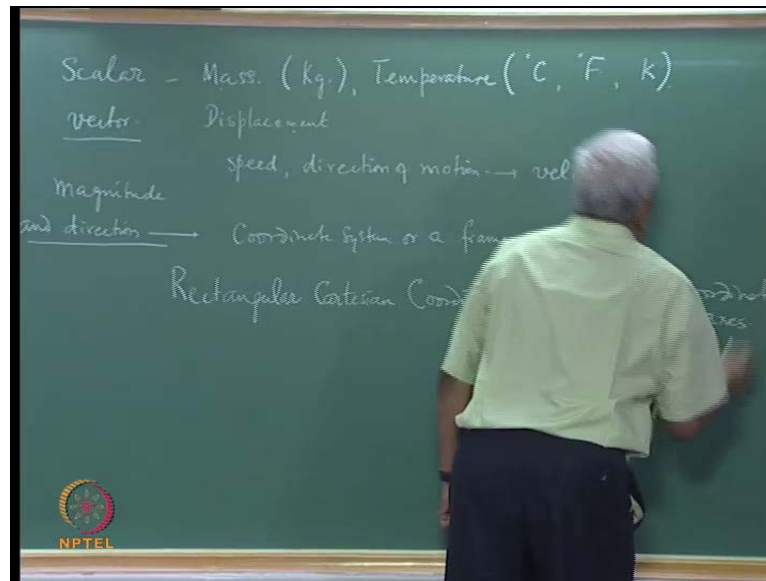 Scalar - Mass. (Kg.), Temperature (°C, °F, K).
vector. Displacement
speed, direction of motion. → vel
Magnitude
and direction → Coordinate System or a fram
Rectangular Cartesian Coordi
axes.
NPTEL